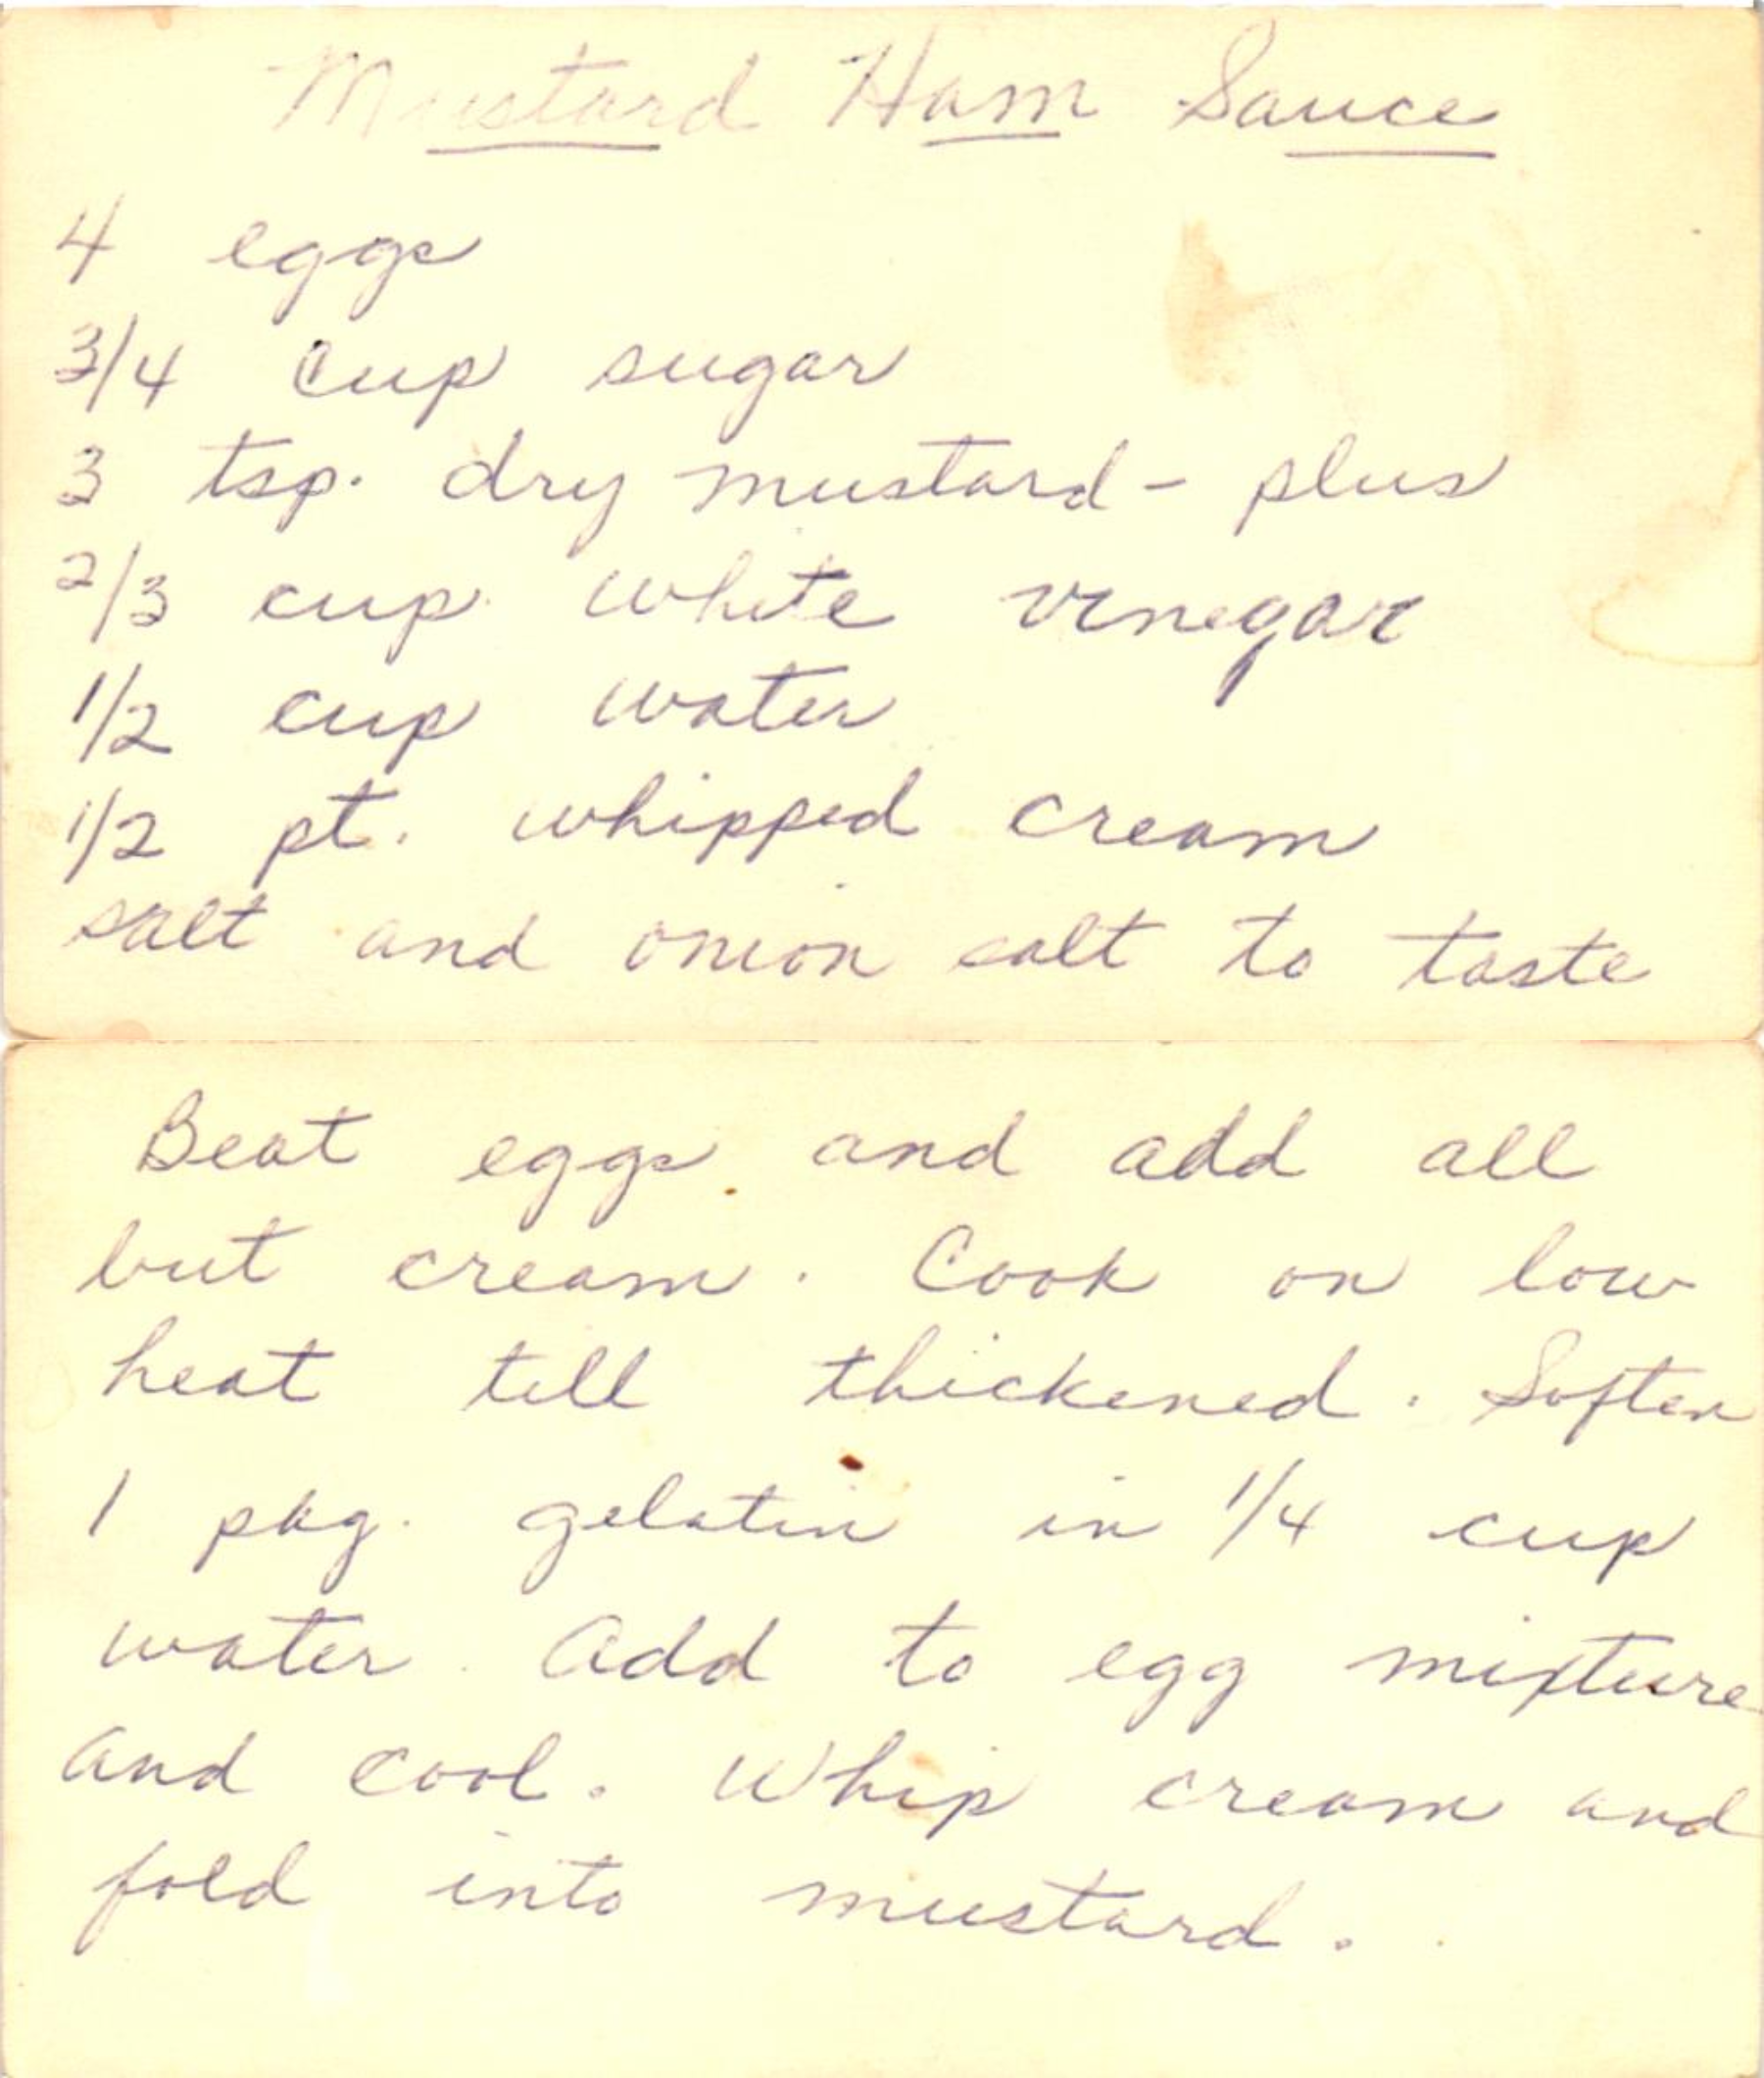 Mustard Ham Sauce
4 eggs
3/4 cup sugar
3 tsp. dry mustard - plus
2/3 cup white vinegar
1/2 cup water
1/2 pt. whipped cream
salt and onion salt to taste
Beat eggs and add all
but cream. Cook on low
heat till thickened. Soften
1 pkg. gelatin in 1/4 cup
water. Add to egg mixture
and cool. Whip cream and
fold into mustard.